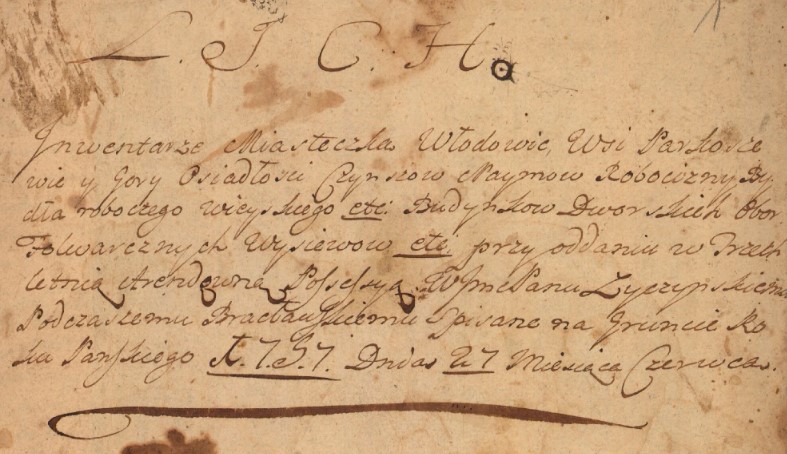 L. J. C. H.
Inwentarze Miasteczka Włodowic, Wsi Parkosze
wic y Gory Osiadłosci Czynszow Naymow Robocizny By
dła roboczego wieyskiego etc: Budynkow Dworskich Obor
Folwarcznych Wysiewow etc przy oddaniu w Trzech
letnią Arendowną Possessyą WJme Panu Zyczynskiemu
Podczaszemu Bracławskiemu Spisane na Gruncie Ro
ku Panskiego 1.7.5.7. Dnia 27 Miesiąca Czerwca.